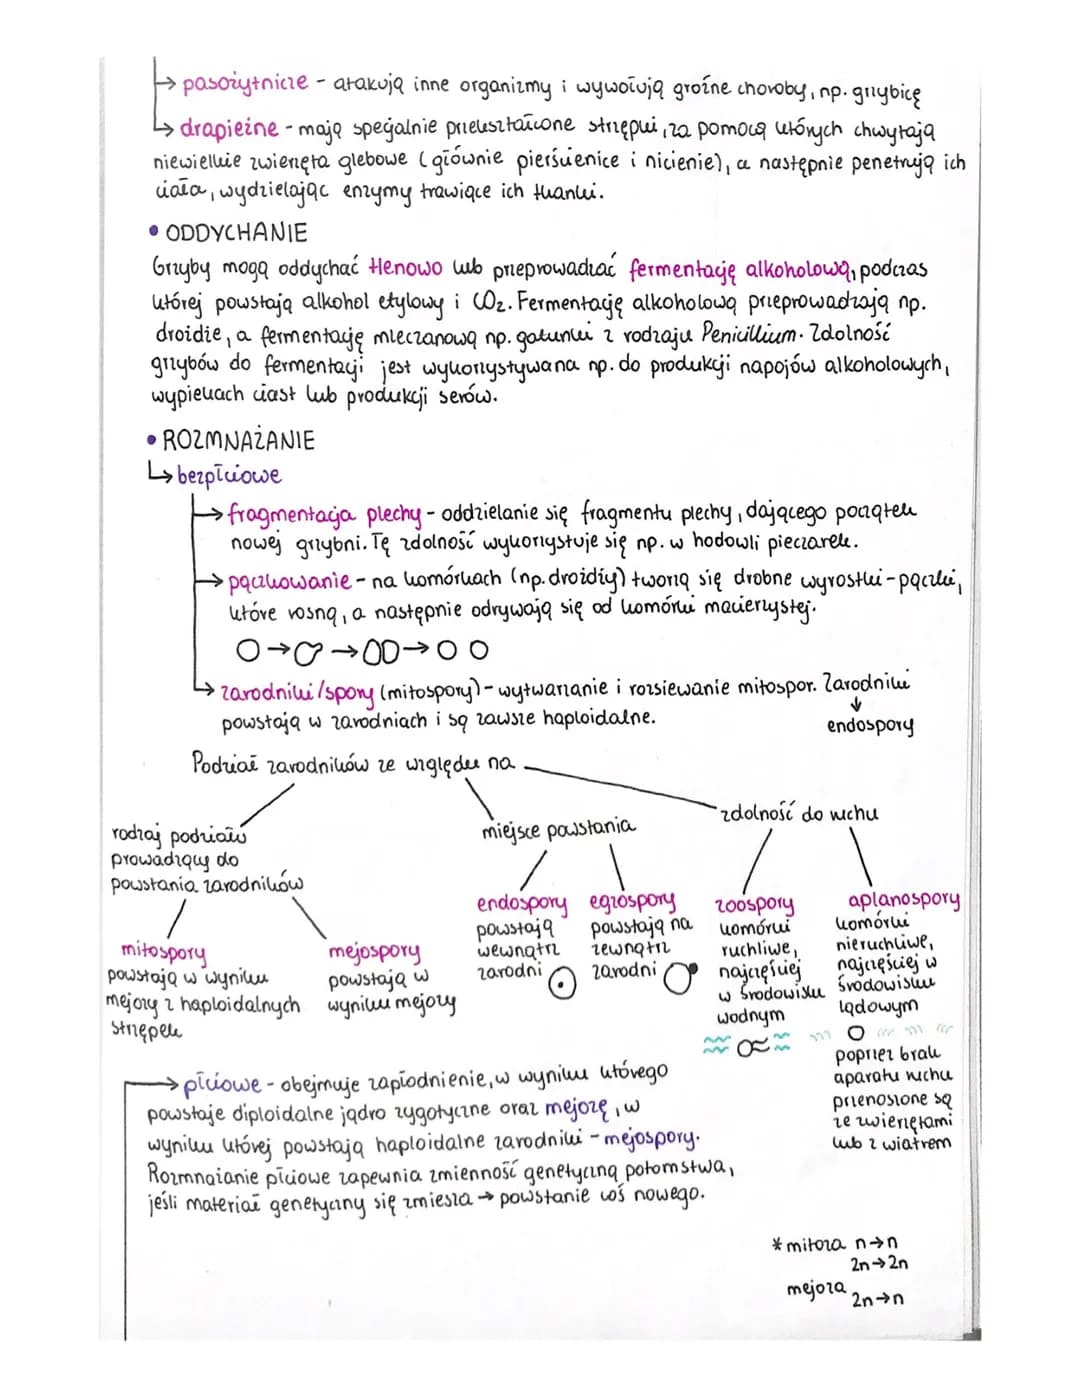 → pasożytnicze - atakują inne organizmy i wywołują groźne choroby, np. grzybicę
→ drapieżne - mają specjalnie przekształcone strzępki, za pomocą których chwytają
niewielkie zwierzęta glebowe (głównie pierścienice i nicienie), a następnie penetrują ich
ciała, wydzielając enzymy trawiące ich tkanki.
• ODDYCHANIE
Grzyby mogą oddychać tlenowo lub przeprowadzać fermentację alkoholową, podczas
której powstają alkohol etylowy i CO2. Fermentację alkoholową przeprowadzają np.
drożdże, a fermentację mleczanową np. gatunki z rodzaju Penicillium. Zdolność
grzybów do fermentacji jest wykorzystywana np. do produkcji napojów alkoholowych,
wypiekach ciast lub produkcji serów.
• ROZMNAŻANIE
↳ bezpłciowe
→ fragmentacja plechy - oddzielanie się fragmentu plechy, dającego początek
nowej grzybni. Tę zdolność wykorzystuje się np. w hodowli pieczarek.
→ pączkowanie - na komórkach (np. drożdży) tworzą się drobne wyrostki - pączki,
które rosną, a następnie odrywają się od komórki macierzystej.
→ zarodniki/spory (mitospory) - wytwarzanie i rozsiewanie mitospor. Zarodniki
powstają w zarodniach i są zawsze haploidalne.
↓
endospory
Podział zarodników ze względu na
rodzaj podziału
prowadzący do
powstania zarodników
mitospory
powstają w wyniku
mejozy z haploidalnych
strzępek
mejospory
powstają w
wyniku mejozy
miejsce powstania
endospory
powstają
wewnątrz
zarodni
egzospory
powstają na
zewnątrz
zarodni
zdolność do ruchu
zoospory
komórki
ruchliwe,
najczęściej
w środowisku
wodnym
aplanospory
komórki
nieruchliwe,
najczęściej w
środowisku
lądowym
poprzez brak
aparatu ruchu
przenoszone są
ze zwierzętami
lub z wiatrem
→ płciowe - obejmuje zapłodnienie, w wyniku którego
powstaje diploidalne jądro zygotyczne oraz mejozę, w
wyniku której powstają haploidalne zarodniki - mejospory.
Rozmnażanie płciowe zapewnia zmienność genetyczną potomstwa,
jeśli materiał genetyczny się zmiesza → powstanie coś nowego.
* mitoza n→n
2n→2n
mejoza 2n→n